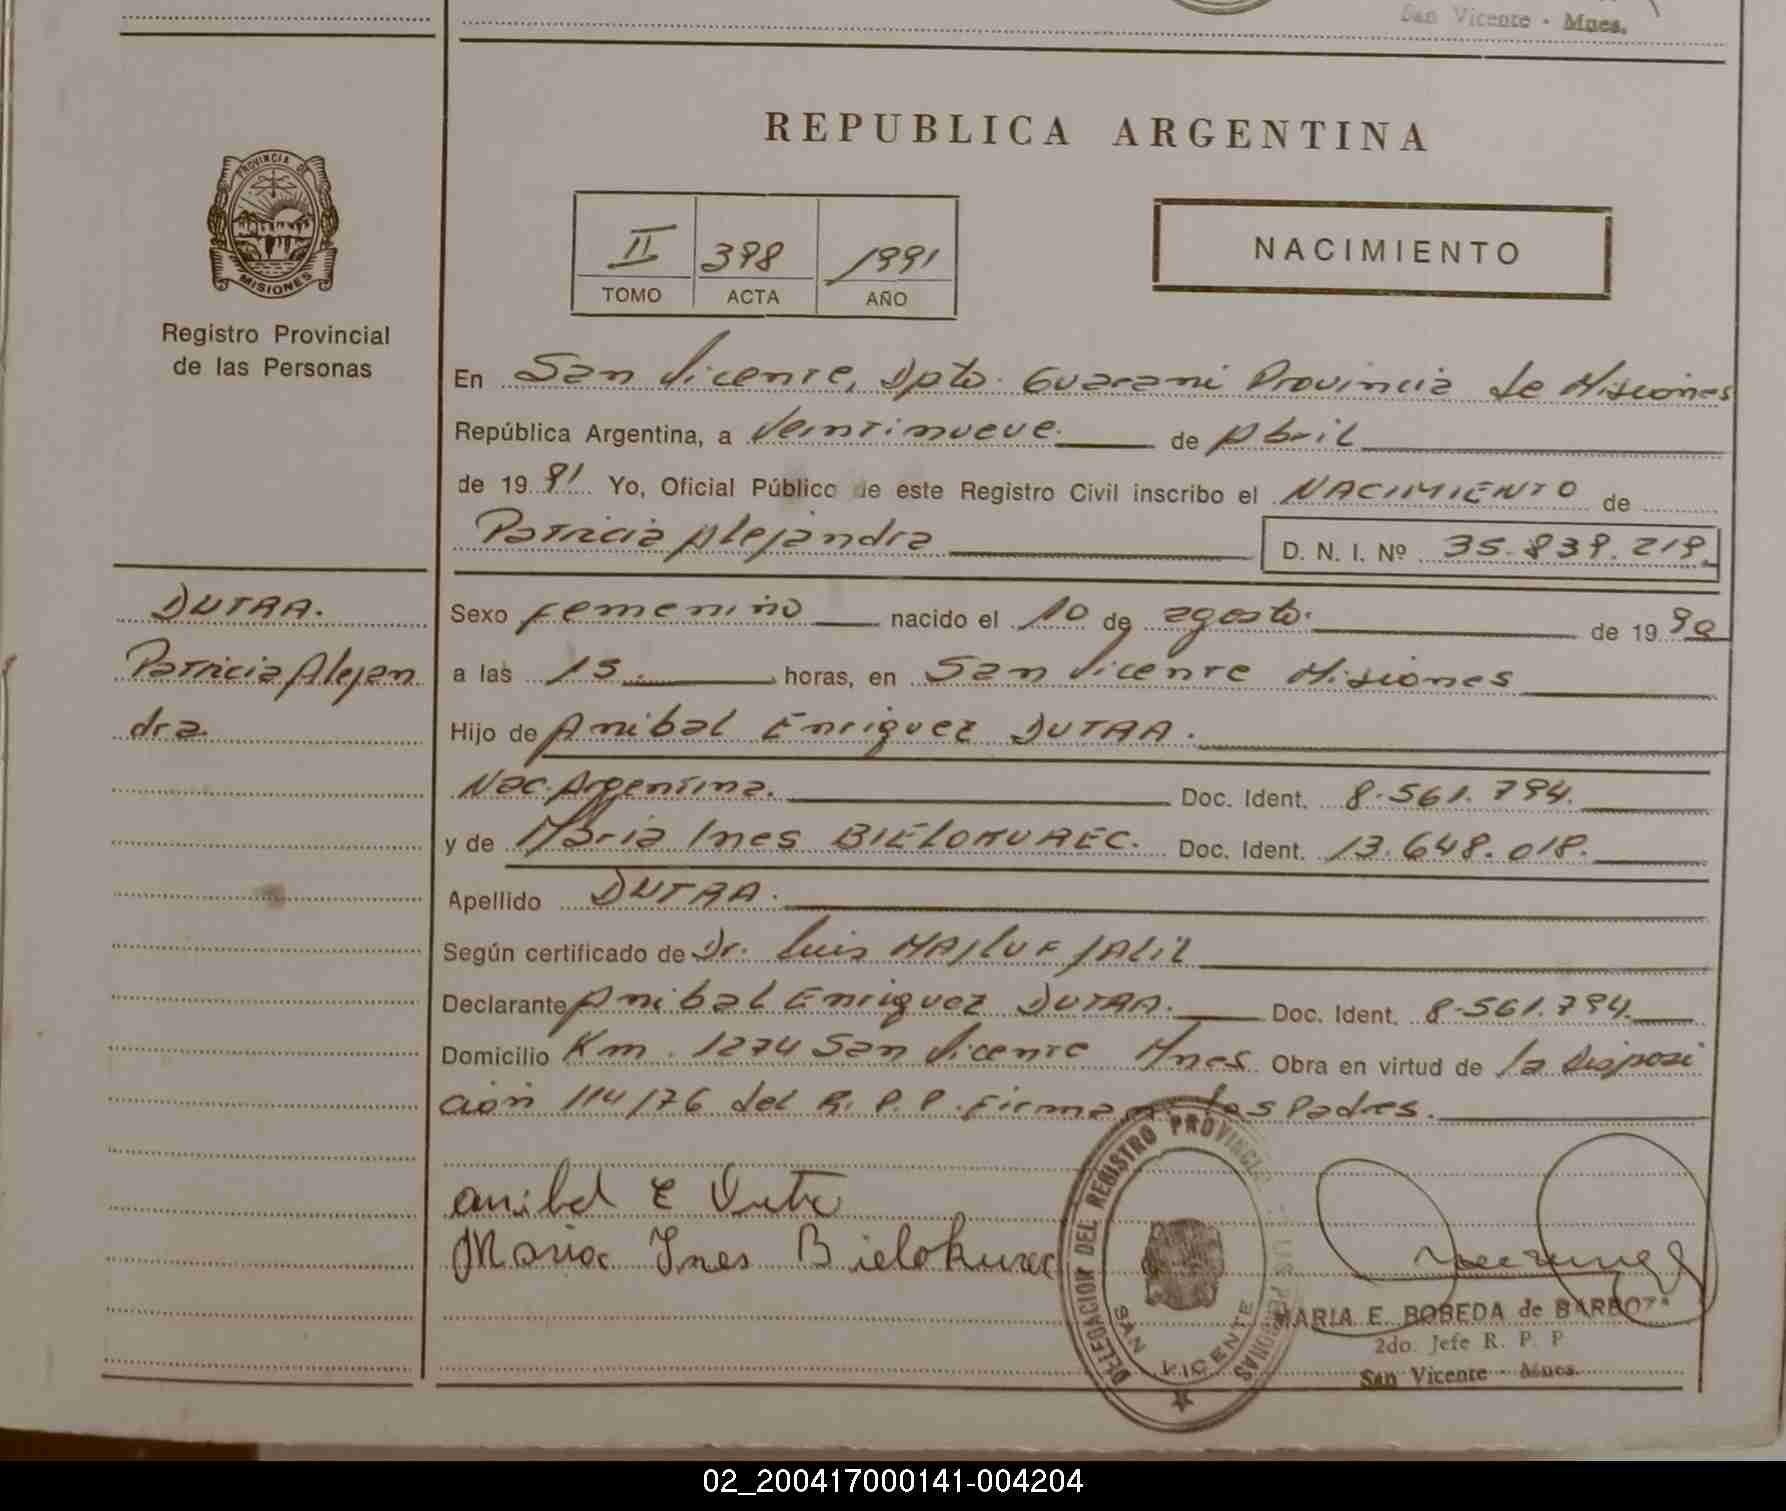 San Vicente - Mnes.
REPUBLICA ARGENTINA
PROVINCIA DE
MISIONES
Registro Provincial
de las Personas
II 398 1991
TOMO ACTA AÑO
NACIMIENTO
En San Vicente, Dpto. Guarani Provincia de Misiones
República Argentina, a Veintinueve de Abril
de 1991 Yo, Oficial Público de este Registro Civil inscribo el NACIMIENTO de
Patricia Alejandra D. N. I. Nº 35.839.219.
DUTRA.
Patricia Alejan
dra.
Sexo femenino nacido el 10 de agosto. de 1990
a las 15. horas, en San Vicente Misiones
Hijo de Anibal Enriquez DUTRA.
Nac. Argentina. Doc. Ident. 8.561.794.
y de Maria Ines BIELOKUREC. Doc. Ident. 13.648.018.
Apellido DUTRA.
Según certificado de Dr. Luis MAJLUF JALIL
Declarante Anibal Enriquez DUTRA. Doc. Ident. 8.561.794.
Domicilio Km. 1274 San Vicente Mnes. Obra en virtud de la Disposi
ción 114/76 del R. P. P. Firman los Padres.
anibal E Dutra
Maria Ines Bielokurec
DELEGACION DEL REGISTRO PROVINCIAL DE LAS PERSONAS
SAN VICENTE
MARIA E. BOBEDA de BARBOZA
2do. Jefe R. P. P
San Vicente - Mnes.
02_200417000141-004204